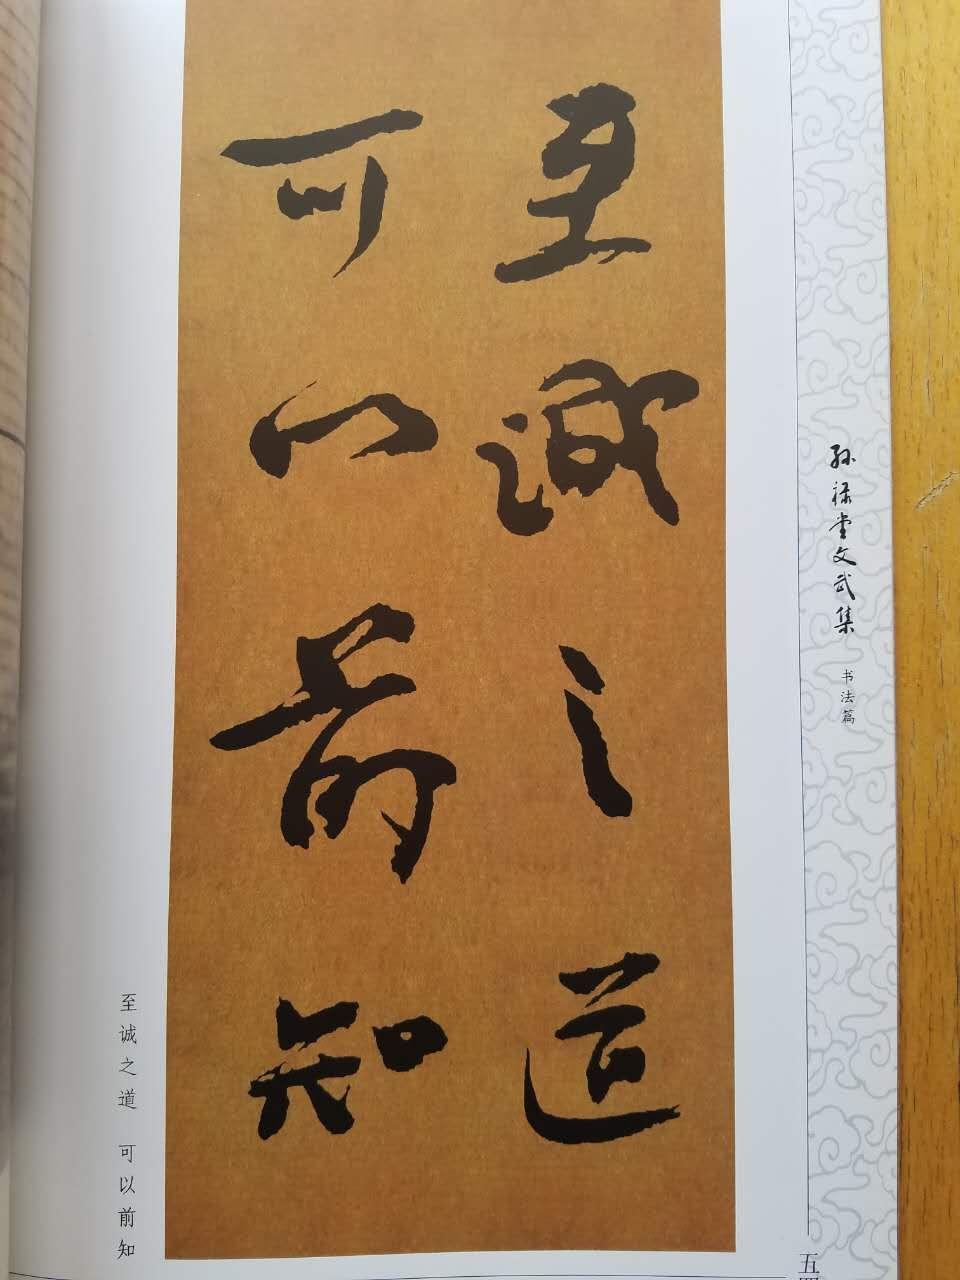 至诚之道
可以前知
孙禄堂文武集 书法篇
至诚之道 可以前知
五四